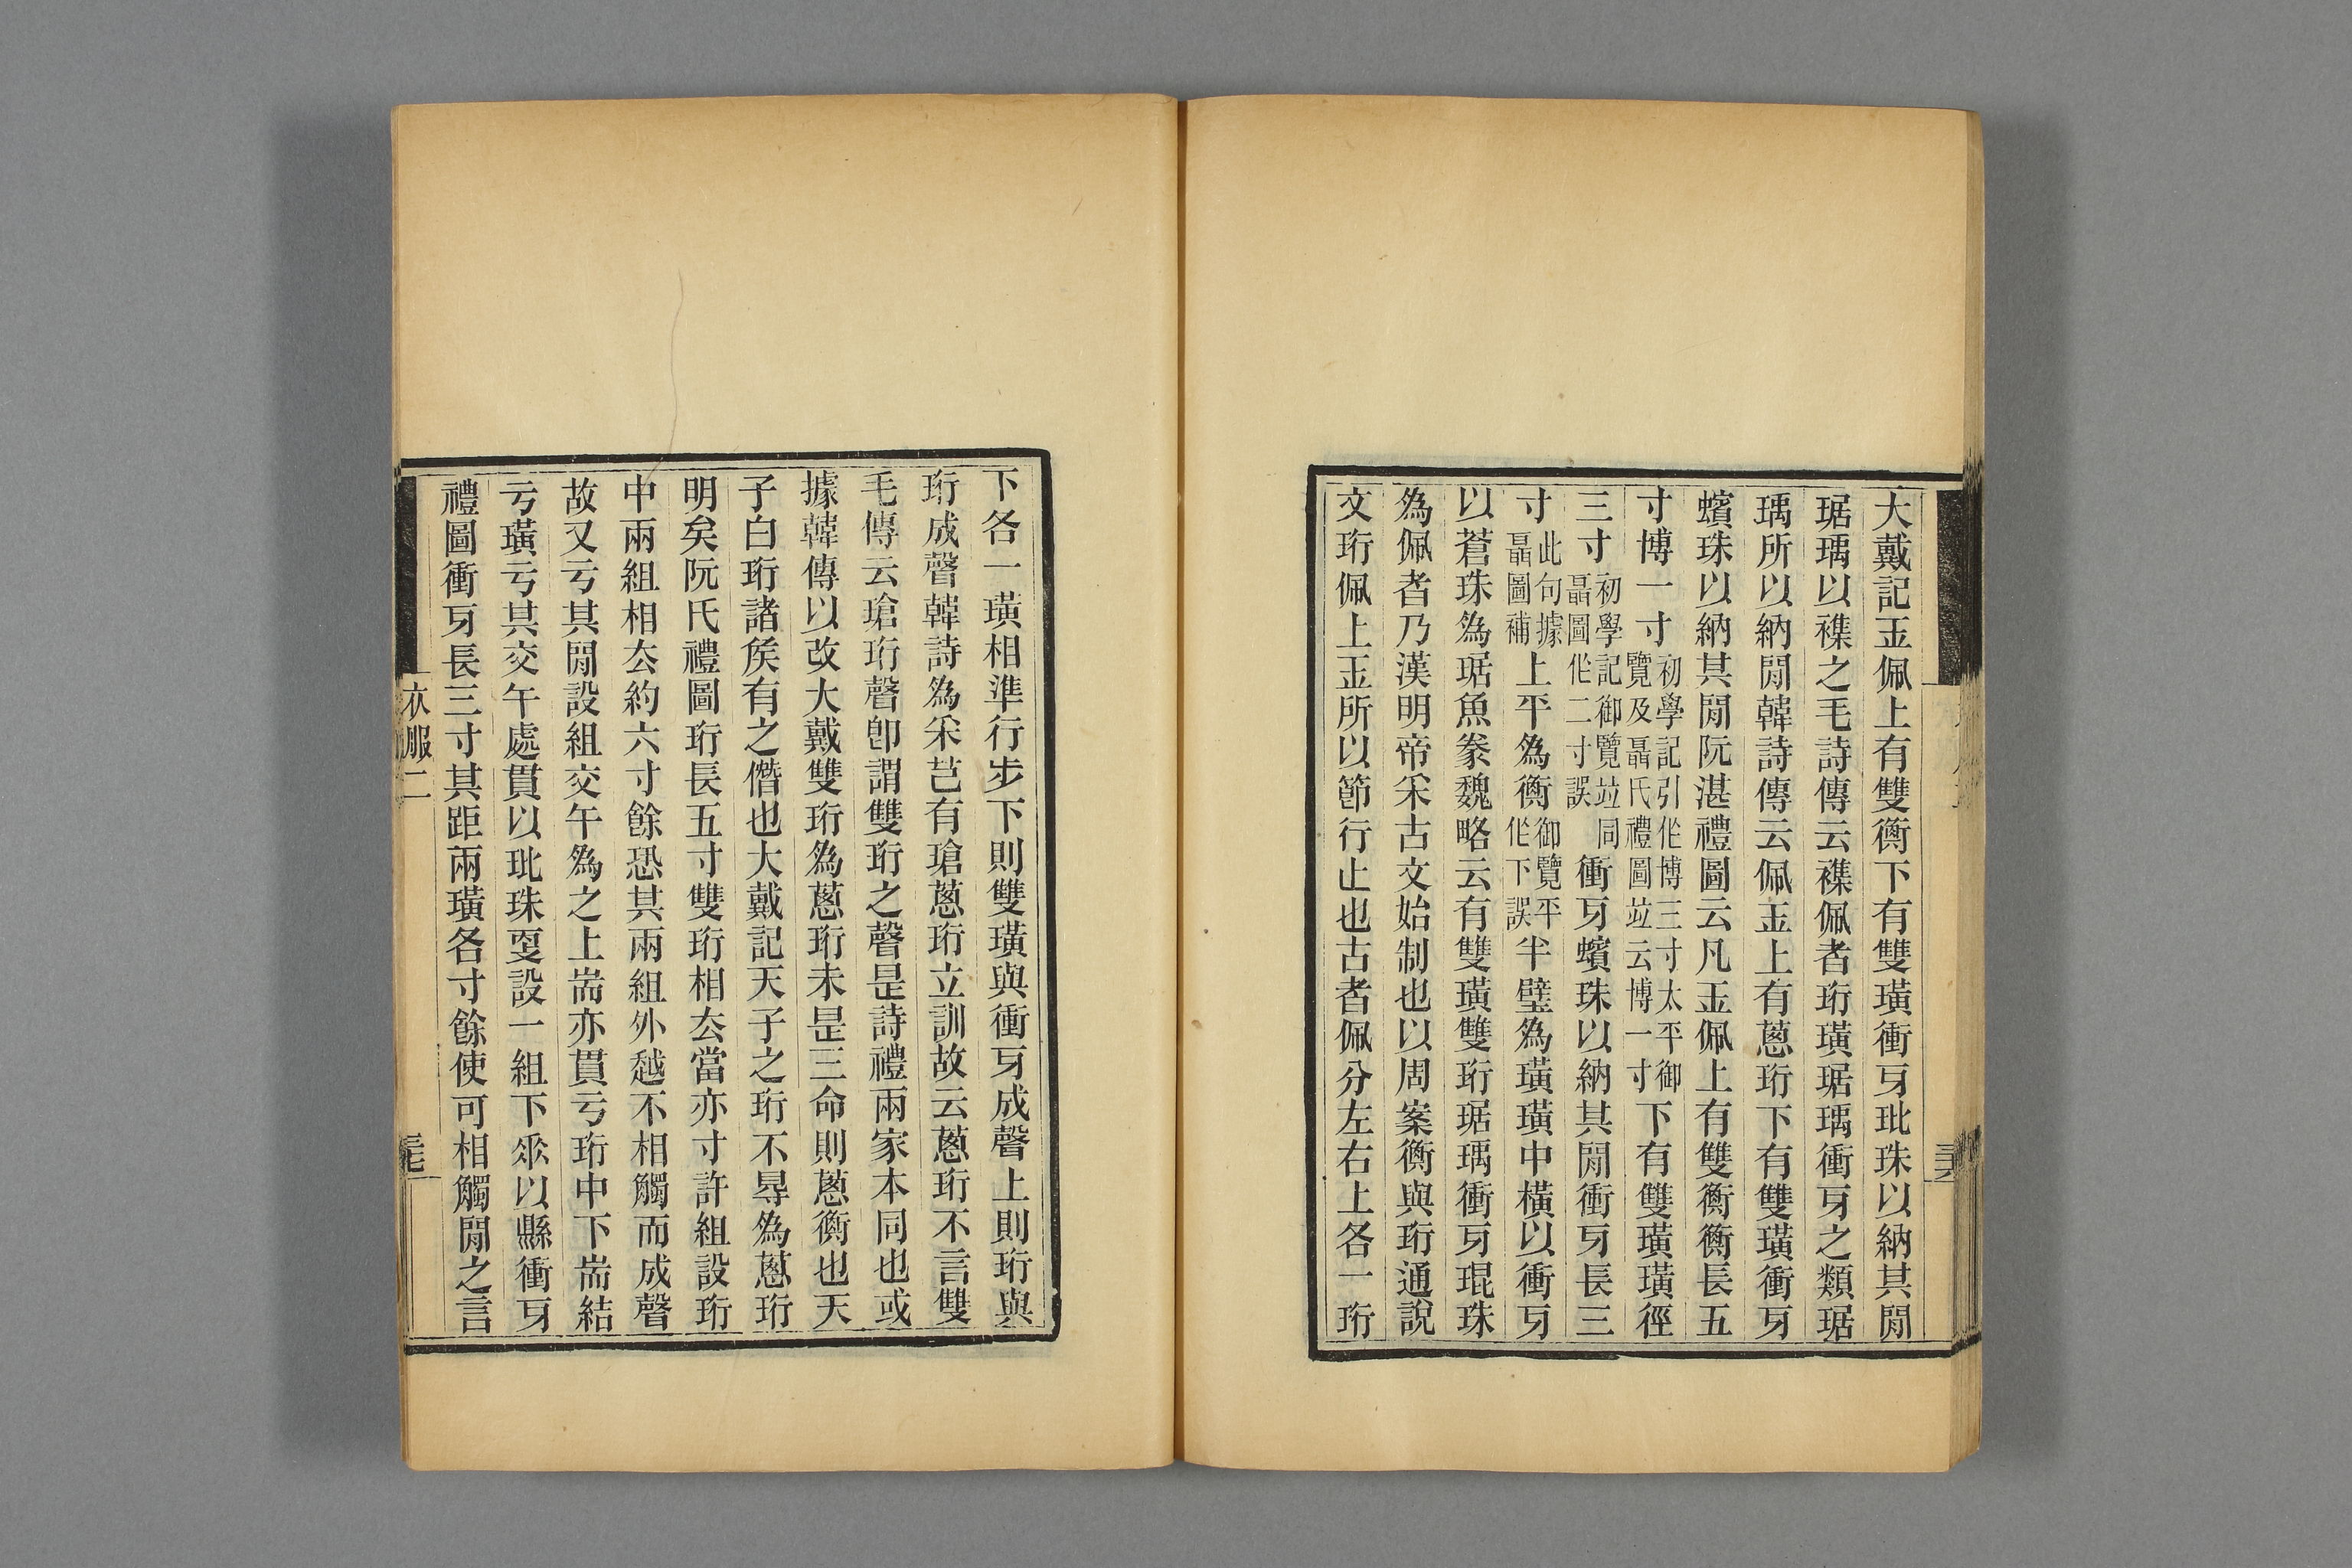 大戴記玉佩上有雙衡下有雙璜衝牙玭珠以納其閒
琚瑀以襍之毛詩傳云襍佩者珩璜琚瑀衝牙之類琚
瑀所以納閒韓詩傳云佩玉上有蔥珩下有雙璜衝牙
蠙珠以納其閒阮湛禮圖云凡玉佩上有雙衡衡長五
寸博一寸初學記引作博三寸太平御覽及聶氏禮圖竝云博一寸下有雙璜璜徑
三寸初學記御覽竝同聶圖作二寸誤衝牙蠙珠以納其閒衝牙長三
寸此句據聶圖補上平為衡御覽平作下誤半璧為璜璜中橫以衝牙
以蒼珠為琚魚豢魏略云有雙璜雙珩琚瑀衝牙琨珠
為佩者乃漢明帝采古文始制也以周案衡與珩通說
文珩佩上玉所以節行止也古者佩分左右上各一珩
三十六
下各一璜相準行步下則雙璜與衝牙成聲上則珩與
珩成聲韓詩為采芑有瑲蔥珩立訓故云蔥珩不言雙
毛傳云瑲珩聲卽謂雙珩之聲是詩禮兩家本同也或
據韓傳以改大戴雙珩為蔥珩未是三命則蔥衡也天
子白珩諸矦有之僭也大戴記天子之珩不㝵為蔥珩
明矣阮氏禮圖珩長五寸雙珩相厺當亦寸許組設珩
中兩組相厺約六寸餘恐其兩組外越不相觸而成聲
故又亏其閒設組交午為之上耑亦貫亏珩中下耑結
亏璜亏其交午處貫以玭珠㪅設一組下𠂹以縣衝牙
禮圖衝牙長三寸其距兩璜各寸餘使可相觸閒之言
衣服二
三十七